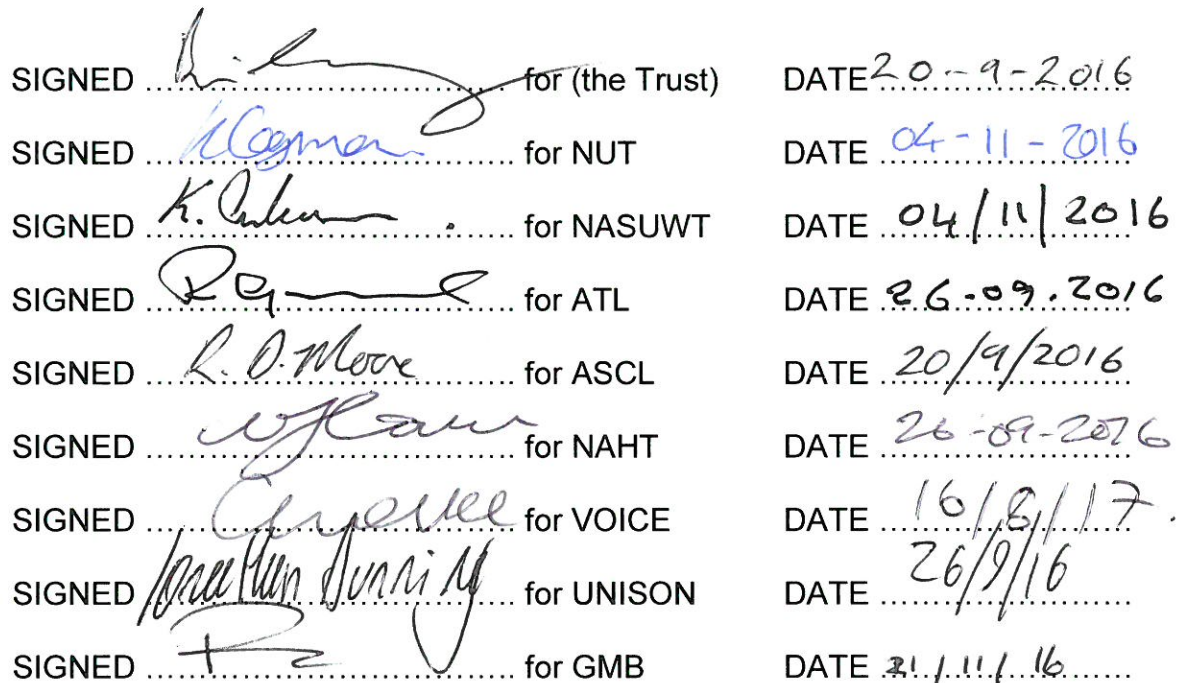 SIGNED .................... for (the Trust) DATE 20-9-2016
SIGNED .................... for NUT DATE 04-11-2016
SIGNED K. .................... for NASUWT DATE 04/11/2016
SIGNED .................... for ATL DATE 26.09.2016
SIGNED R. D. Moore for ASCL DATE 20/9/2016
SIGNED .................... for NAHT DATE 26-09-2016
SIGNED .................... for VOICE DATE 16/8/17.
SIGNED Jonathan Dunning for UNISON DATE 26/9/16
SIGNED .................... for GMB DATE 21/11/16